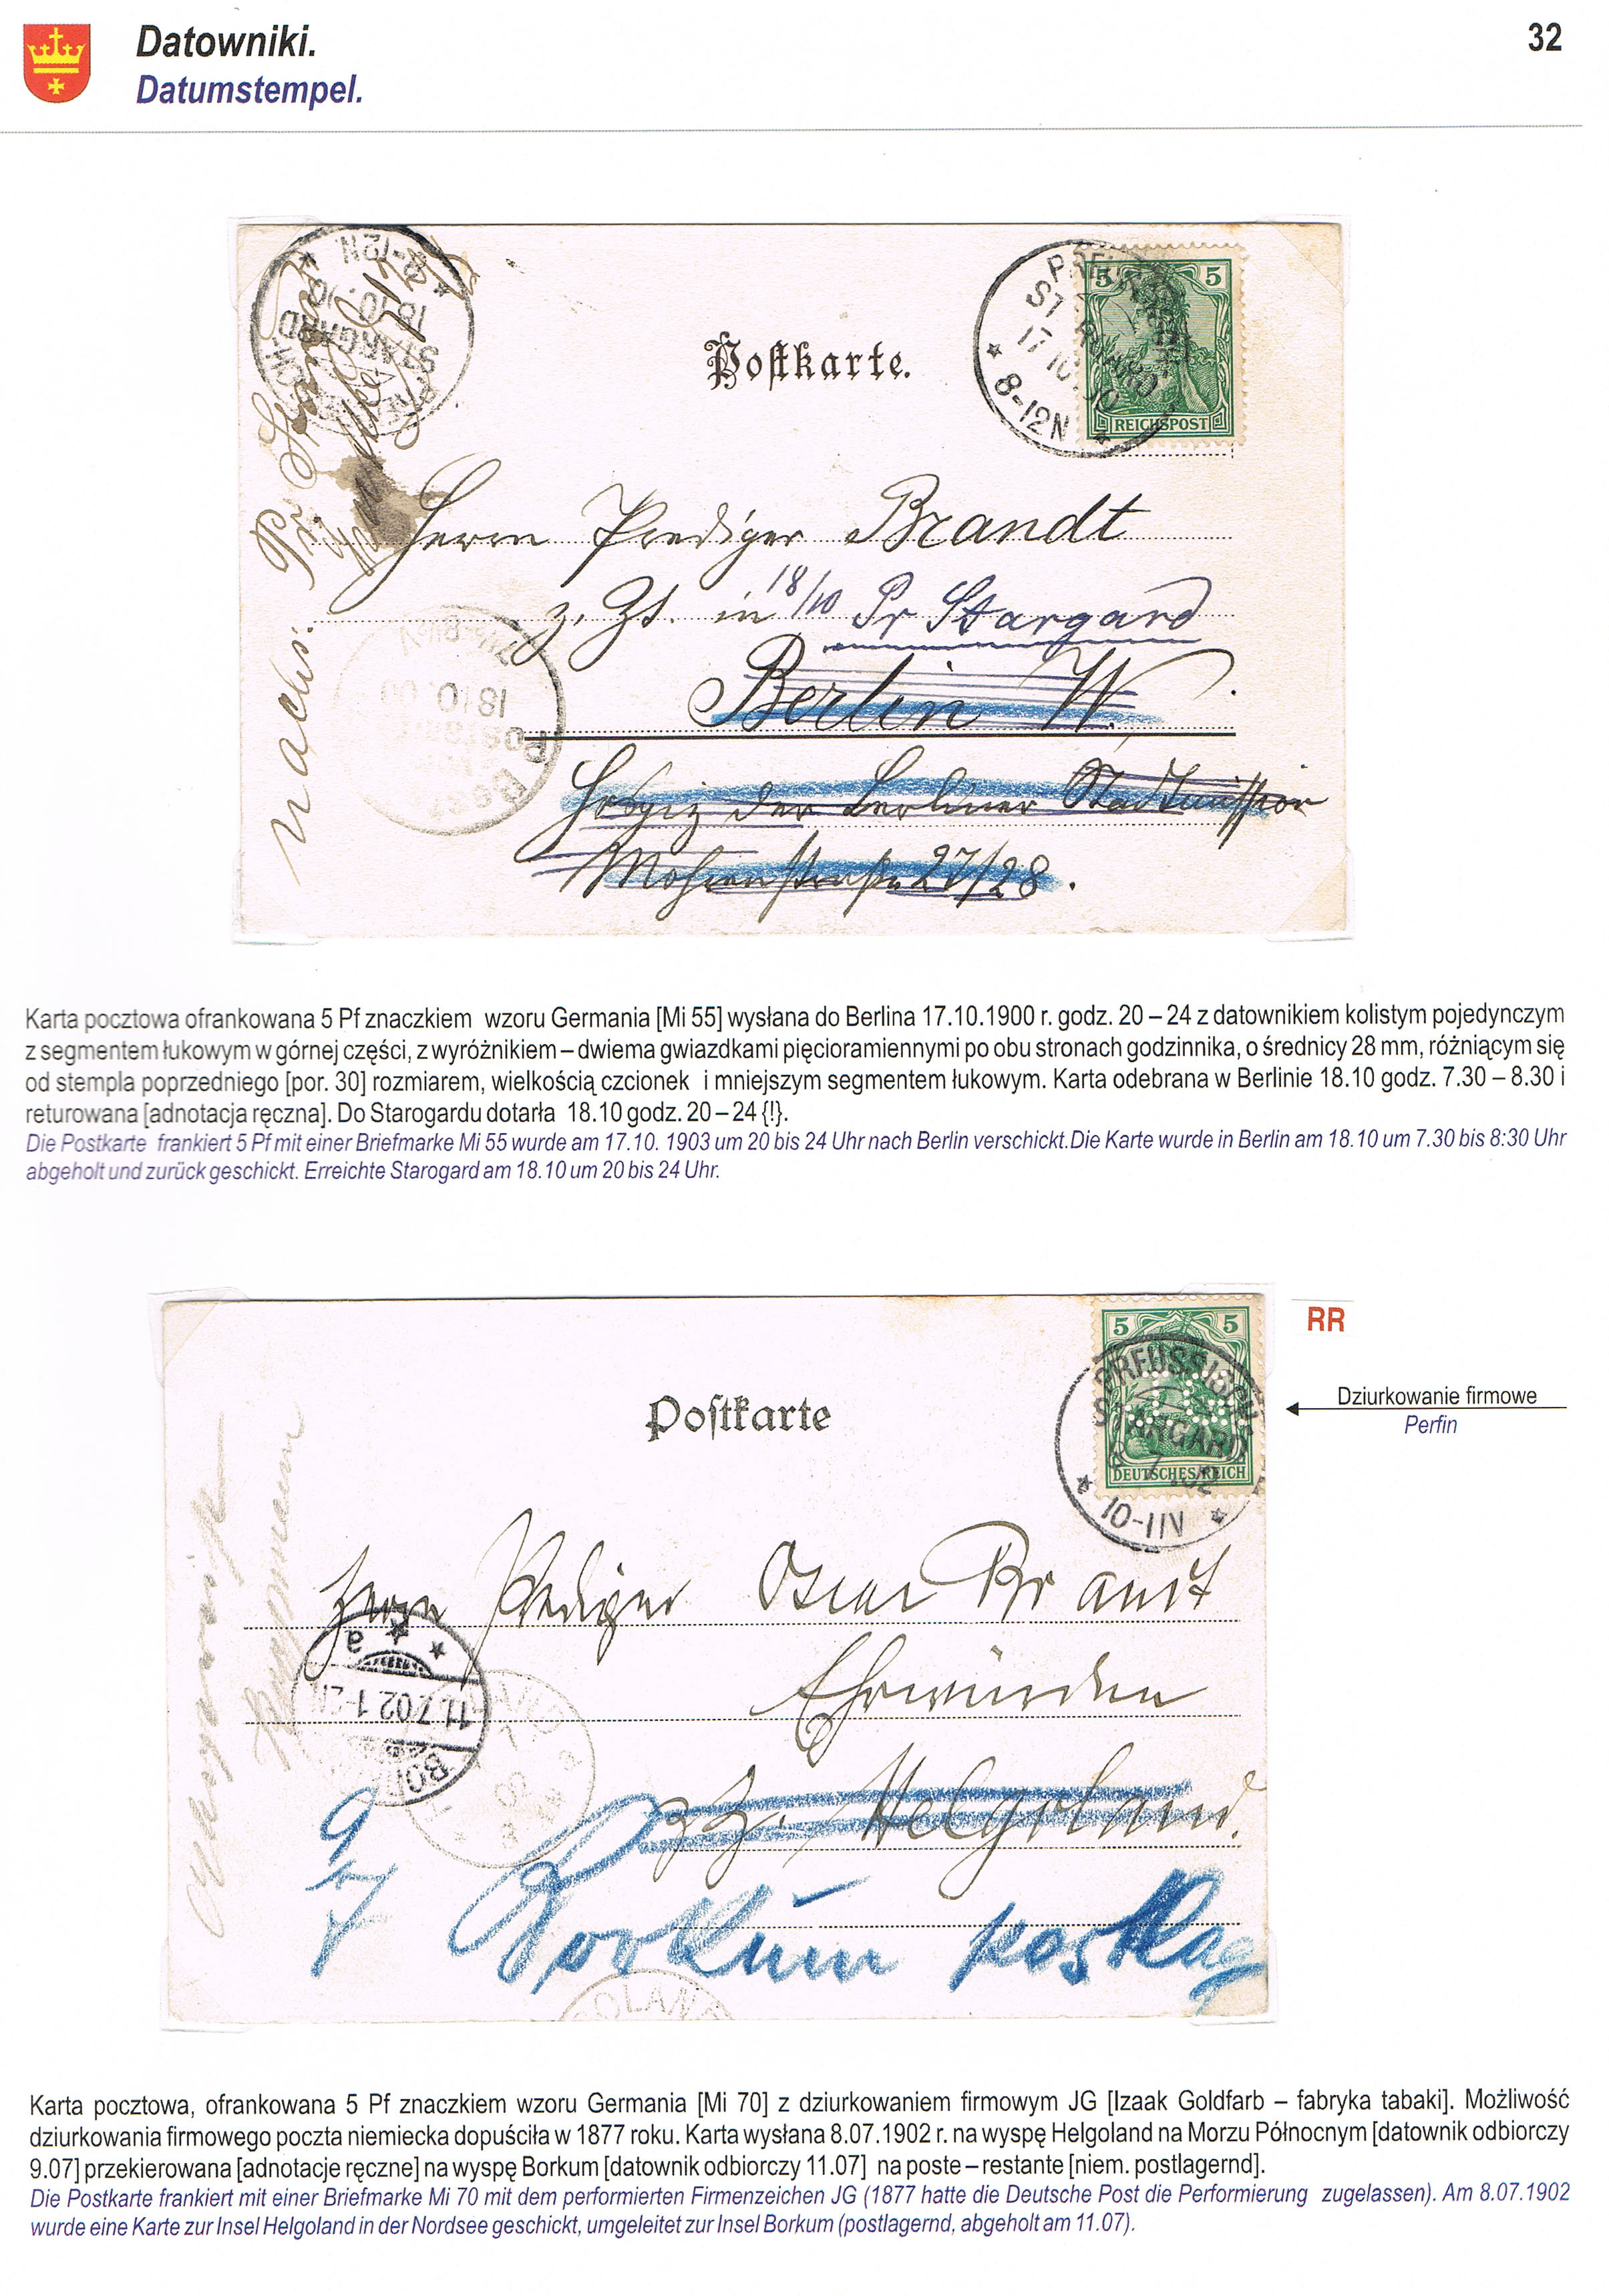 Datowniki.
Datumstempel.
32
8-12N
18.10.00
STARGARD
PREUSS
ST RGARD
17 10 00
8-12N
5 5
REICHSPOST
Postkarte.
Pr. Stargard
nachs.
Herrn Prediger Brandt
z. Zt. in 18/10 Pr Stargard
Berlin W.
Hospiz der Berliner Stadtmission
Mohrenstraße 27/28.
18 10.00
Karta pocztowa ofrankowana 5 Pf znaczkiem wzoru Germania [Mi 55] wysłana do Berlina 17.10.1900 r. godz. 20 – 24 z datownikiem kolistym pojedynczym
z segmentem łukowym w górnej części, z wyróżnikiem – dwiema gwiazdkami pięcioramiennymi po obu stronach godzinnika, o średnicy 28 mm, różniącym się
od stempla poprzedniego [por. 30] rozmiarem, wielkością czcionek i mniejszym segmentem łukowym. Karta odebrana w Berlinie 18.10 godz. 7.30 – 8.30 i
returowana [adnotacja ręczna]. Do Starogardu dotarła 18.10 godz. 20 – 24 {!}.
Die Postkarte frankiert 5 Pf mit einer Briefmarke Mi 55 wurde am 17.10. 1903 um 20 bis 24 Uhr nach Berlin verschickt.Die Karte wurde in Berlin am 18.10 um 7.30 bis 8:30 Uhr
abgeholt und zurück geschickt. Erreichte Starogard am 18.10 um 20 bis 24 Uhr.
5 5
PREUSSISCH
STARGARD
7.02
10-11N
DEUTSCHES REICH
RR
Dziurkowanie firmowe
Perfin
Postkarte
Herrn Prediger Oscar Brandt
Ehrwürden
a
11.7.02.1-2N
BOR
zZ. Helgoland.
9
7
Borkum postlag
GOLAND
Karta pocztowa, ofrankowana 5 Pf znaczkiem wzoru Germania [Mi 70] z dziurkowaniem firmowym JG [Izaak Goldfarb – fabryka tabaki]. Możliwość
dziurkowania firmowego poczta niemiecka dopuściła w 1877 roku. Karta wysłana 8.07.1902 r. na wyspę Helgoland na Morzu Północnym [datownik odbiorczy
9.07] przekierowana [adnotacje ręczne] na wyspę Borkum [datownik odbiorczy 11.07] na poste – restante [niem. postlagernd].
Die Postkarte frankiert mit einer Briefmarke Mi 70 mit dem performierten Firmenzeichen JG (1877 hatte die Deutsche Post die Performierung zugelassen). Am 8.07.1902
wurde eine Karte zur Insel Helgoland in der Nordsee geschickt, umgeleitet zur Insel Borkum (postlagernd, abgeholt am 11.07).